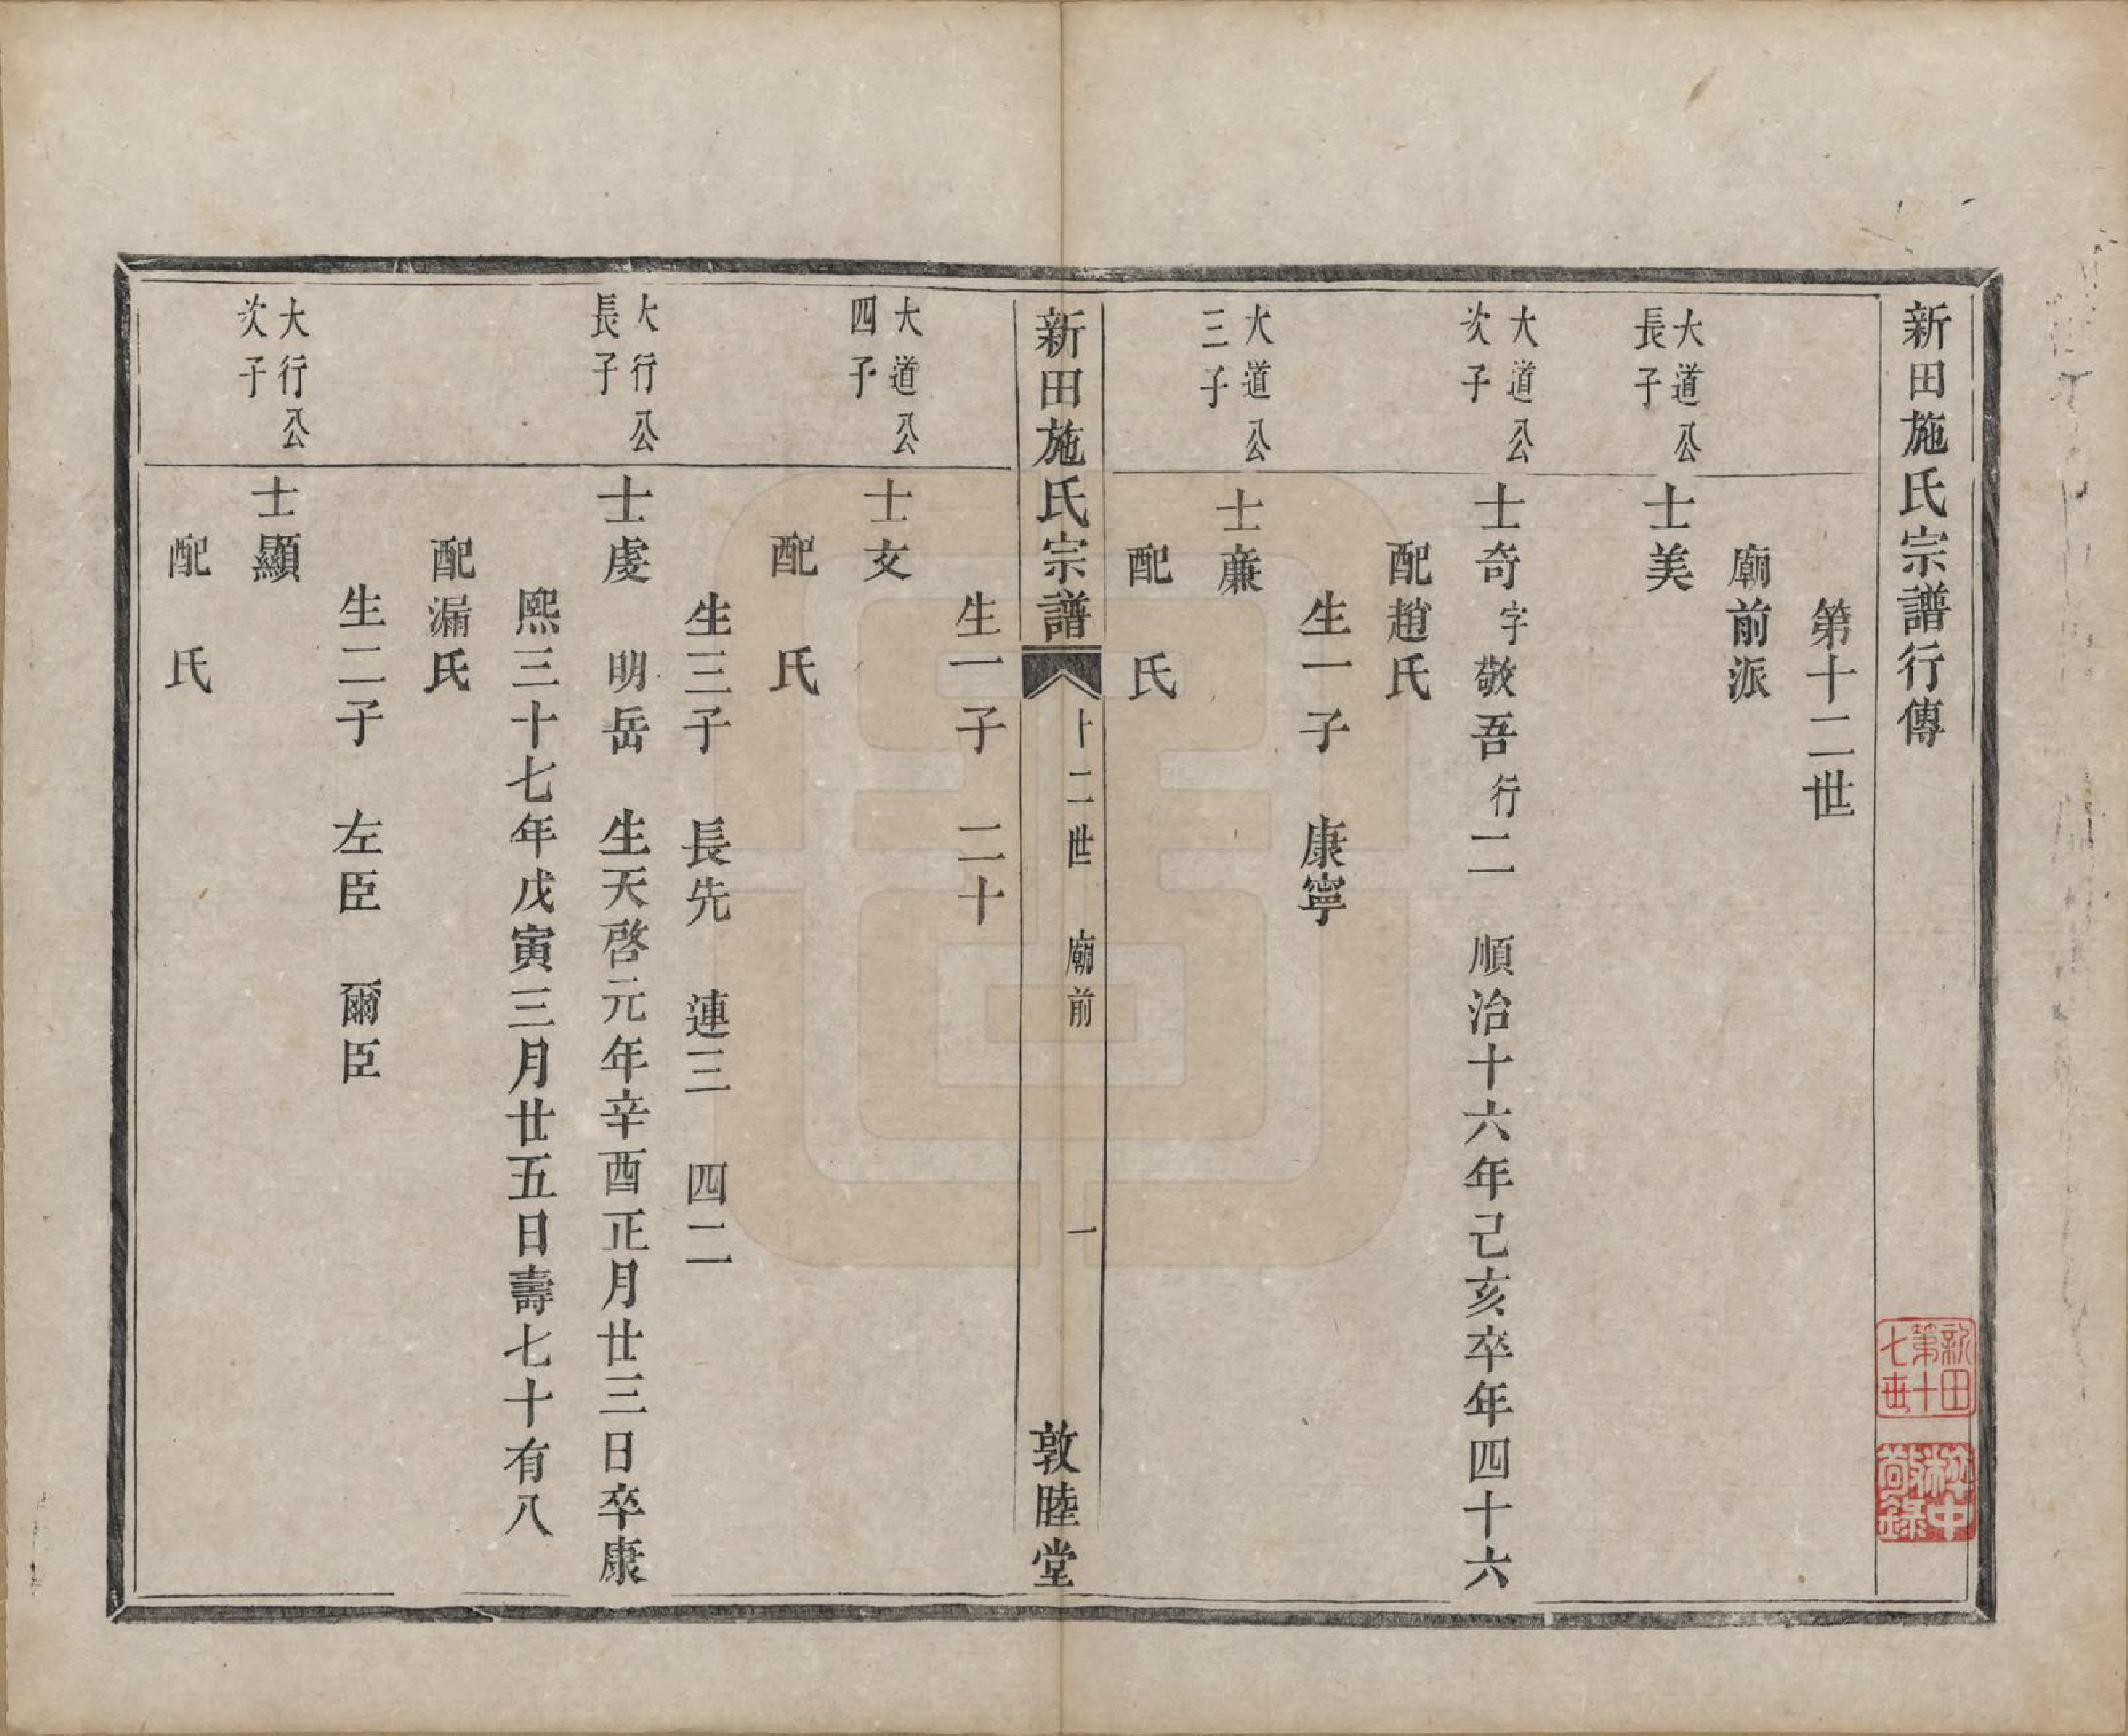 新田施氏宗譜行傳
第十二世
廟前派
大道公
長子
士美
大道公
次子
士奇字敬吾行二 順治十六年己亥卒年四十六
配趙氏
生一子 康寧
大道公
三子
士亷
配 氏
新田施氏宗譜 十二世 廟前 一 敦睦堂
生一子 二十
大道公
四子
士文
配 氏
生三子 長先 連三 四二
大行公
長子
士虔 明岳 生天啓元年辛酉正月廿三日卒康
熙三十七年戊寅三月廿五日壽七十有八
配漏氏
生二子 左臣 爾臣
大行公
次子
士顯
配 氏
新田
第十
七世